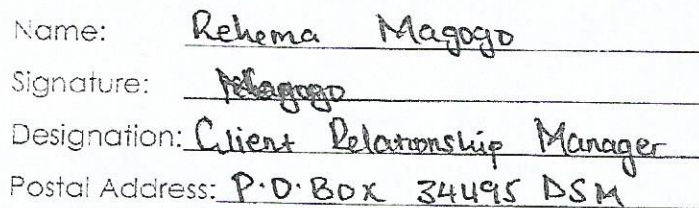 Name: Rehema Magogo
Signature: Magogo
Designation: Client Relationship Manager
Postal Address: P.O. BOX 34495 DSM